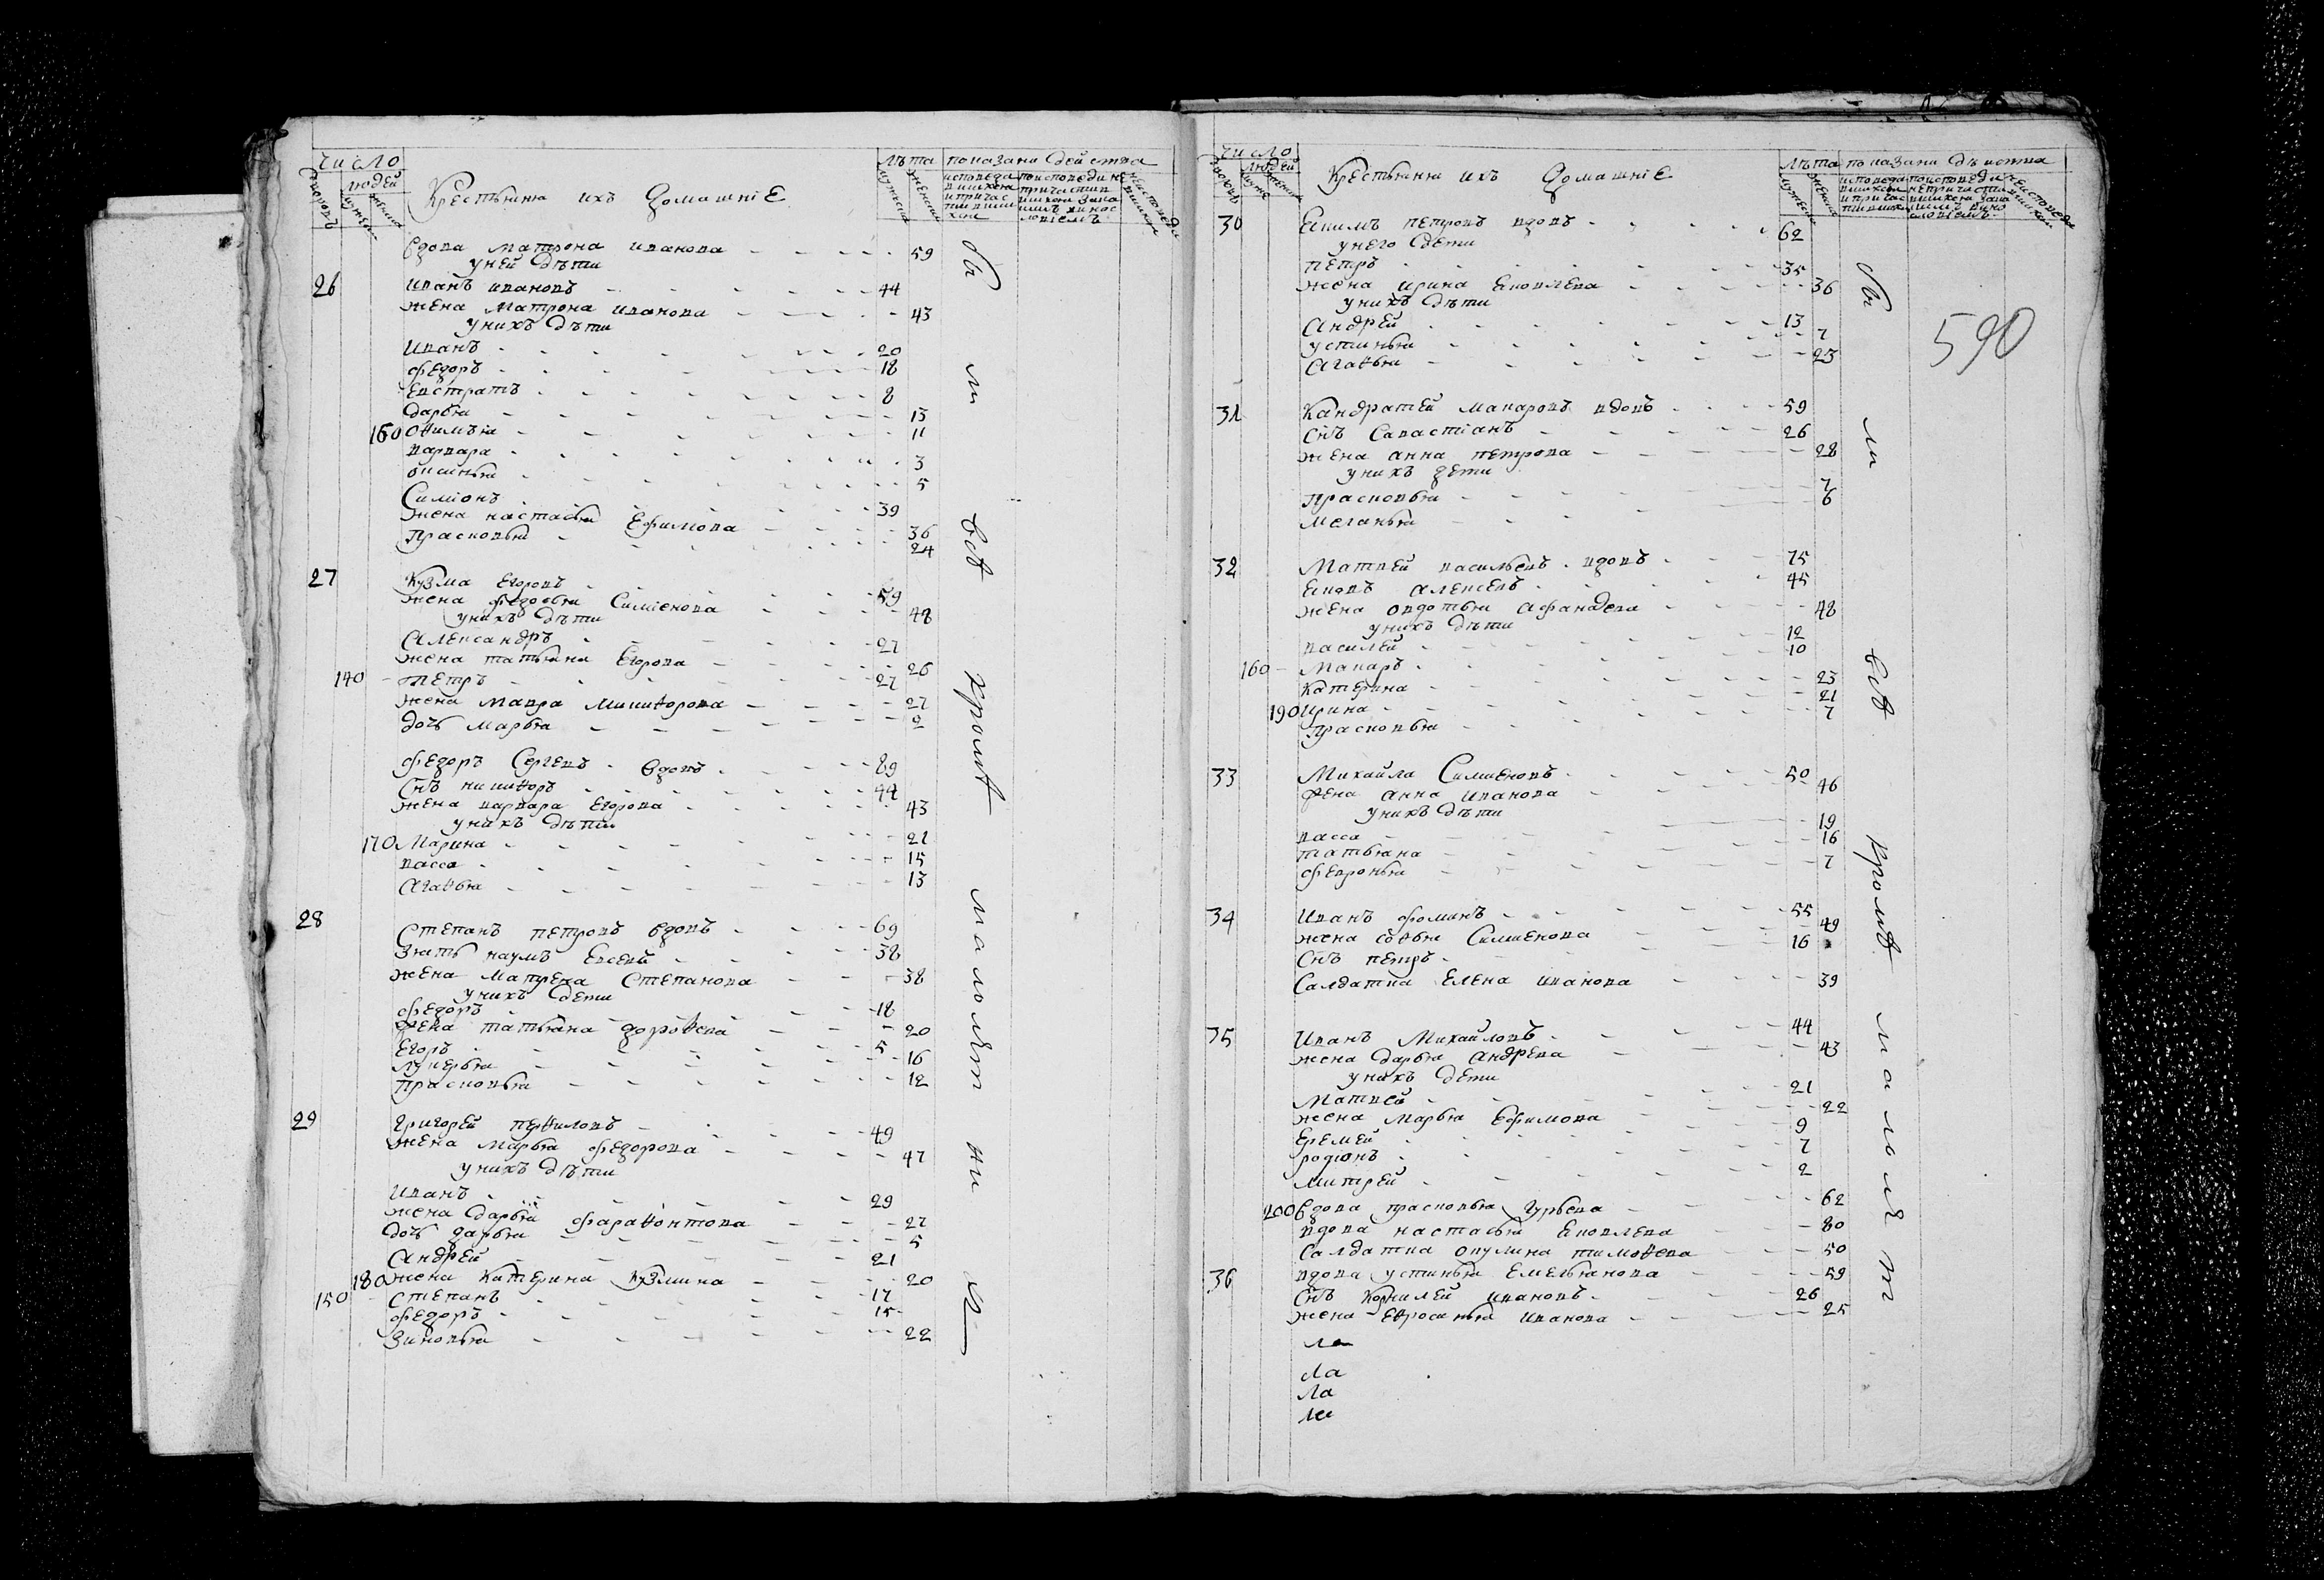 число
людей
дворовъ
мужеска
женска
Крестьяня ихъ домашніе
лѣта
мужеска
женска
показани действа
исповеда вшихся и причас тившихся
поисповедине причастив шихся зака нимъ винос ловіемъ
неисповеда вшихся
Вдова Матрона иванова 59
уней дѣти
26 Иванъ ивановъ 44
жена Матрона иванова 43
унихъ дѣти
Иванъ 20
Федоръ 18
Евстратъ 8
дарья 13
160 Офимья 11
варвара 3
оксинья 5
Симіонъ 39
жена настасья Ефимова 36
прасковья 24
27 Кузма Егоровъ 59
жена федосья Симіонова 48
унихъ дѣти
Александръ 27
жена татьяна Егорова 26
140 Петръ 27
жена Мавра Микиѳорова 27
дочь Марья 2
Федоръ Сергевъ вдовъ 89
Снъ никиѳоръ 44
жена варвара Егорова 43
унихъ дѣти
170 Марина 21
васса 15
Агаѳья 13
28 Степанъ петровъ вдовъ 69
Зять наумъ Евсевй 38
жена Матрена Степанова 38
унихъ дети
Федоръ 18
жена татьяна дороѳева 20
Егоръ 5
лукерья 16
прасковья 12
29 Григорей перѳиловъ 49
жена Марья федорова 47
унихъ дѣти
Иванъ 29
жена дарья фараѳонтова 27
дочь дарья 5
Андрей 21
180 жена Катерина Кузмина 20
150 Степанъ 17
Федоръ 15
Зиновья 22
бы ли всѣ кромѣ малолѣтныхъ
число
людей
дворовъ
мужеска
женска
Крестьяня ихъ домашніе
лѣта
мужеска
женска
показани дѣиства
исповеда вшихся и причас тившихся
поисповеди непричасти вшихся зака нимъ вино словіемъ
неисповеда вшихся
590
30 Екимъ петровъ вдовъ 62
унего дети
петръ 35
жена ирина Яковлева 36
унихъ дѣти
Андрей 13
устинья 7
Агаѳья 23
31 Кандратей макаровъ вдовъ 59
Снъ Савастіанъ 26
жена анна петрова 28
унихъ дети
прасковья 7
меланья 6
32 Матвей васильевъ вдовъ 75
Яковъ Алексевъ 45
жена овдотья афанасева 48
унихъ дѣти
василей 12
160 Макаръ 10
Катерина 23
190 Ирина 21
прасковья 7
33 Михайла Симионовъ 50
жена анна иванова 46
унихъ дѣти
васса 19
татьяна 16
февронья 7
34 Иванъ фоминъ 55
жена софья Симионова 49
Снъ петръ 16
Салдатка Елена иванова 39
35 Иванъ Михайловъ 44
жена дарья Андрева 43
унихъ дети
Матвей 21
жена марья Ефимова 22
Еремей 9
родіонъ 7
митрей 2
200 Вдова прасковья Гурьева 62
вдова настасья Яковлева 80
Салдатка окулина тимоѳева 50
36 вдова устинья Емельянова 59
Снъ Корнилей ивановъ 26
жена Еѳросинья иванова 25
ла
ла
ла
ла
бы ли всѣ кромѣ малолѣт